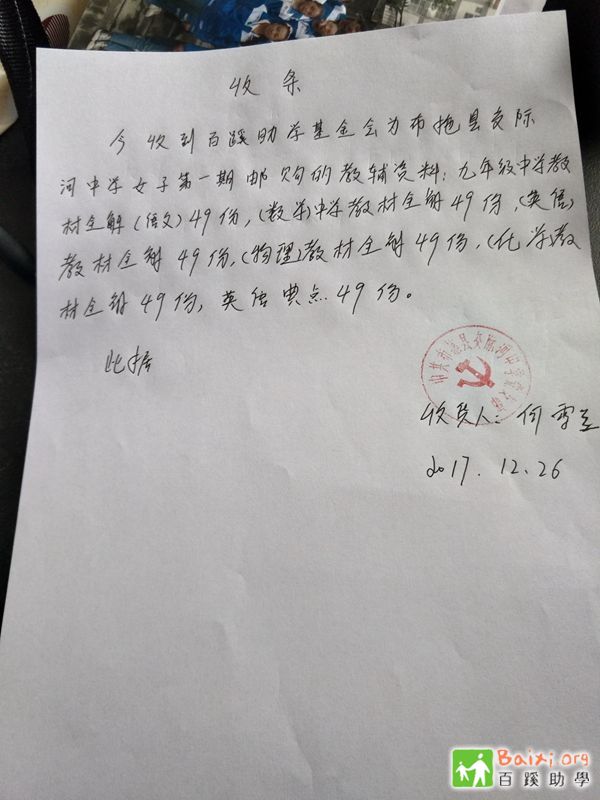 收条
今收到百蹊助学基金会为布拖县交际
河中学女子第一期邮购的教辅资料：九年级中学教
材全解（语文）49份，（数学）中学教材全解49份，（英语）
教材全解49份，（物理）教材全解49份，（化学）教
材全解49份，英语典点49份。
此据
中共布拖县交际河中学支
收货人：何雪
2017.12.26
Baixi.org
百蹊助學